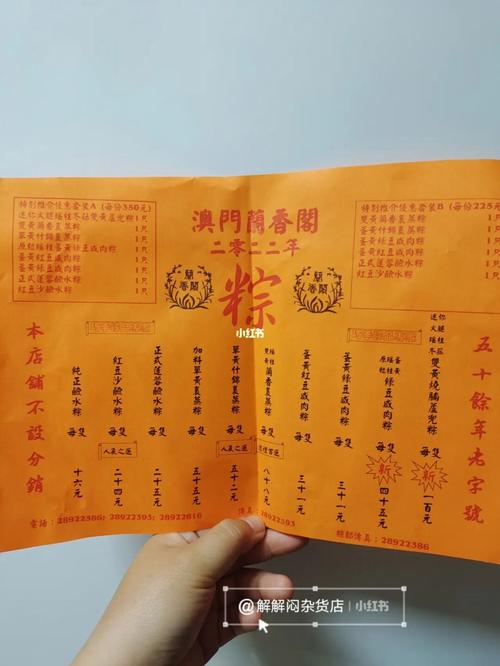 特別推介優惠套裝A (每份380元)
迷你火腿瑤柱冬菇雙黃蘆兜粽 1只
雙黃蘭香裹蒸粽 1只
單黃什錦裹蒸粽 1只
原粒瑤柱蛋黃綠豆咸肉粽 1只
蛋黃紅豆咸肉粽 1只
蛋黃綠豆咸肉粽 1只
正式蓮蓉鹼水粽 1只
紅豆沙鹼水粽 1只
澳門蘭香閣
二零二二年
粽
蘭香閣
蘭香閣
小红书
特別推介優惠套裝B (每份225元)
雙黃蘭香裹蒸粽
單黃什錦裹蒸粽
蛋黃紅豆咸肉粽
蛋黃綠豆咸肉粽
正式蓮蓉鹼水粽
紅豆沙鹼水粽
五十餘年老字號
迷你火腿瑤柱冬菇雙黃燒腩蘆兜粽 每隻 新 一百元
原粒瑤柱蛋黃綠豆咸肉粽 每隻 新 四十五元
蛋黃綠豆咸肉粽 每隻 三十一元
蛋黃紅豆咸肉粽 每隻 三十一元
瑤柱雙黃蘭香裹蒸粽 每隻 八十八元
單黃什錦裹蒸粽 每隻 人氣之選 五十二元
加料單黃裹蒸粽 每隻 五十五元
正式蓮蓉鹼水粽 每隻 二十五元
紅豆沙鹼水粽 每隻 人氣之選 二十四元
純正鹼水粽 每隻 十六元
本店舖不設分銷
電話：28922386; 28922393; 28922616
傳真：28922393
28922386
@解解闷杂货店 小红书